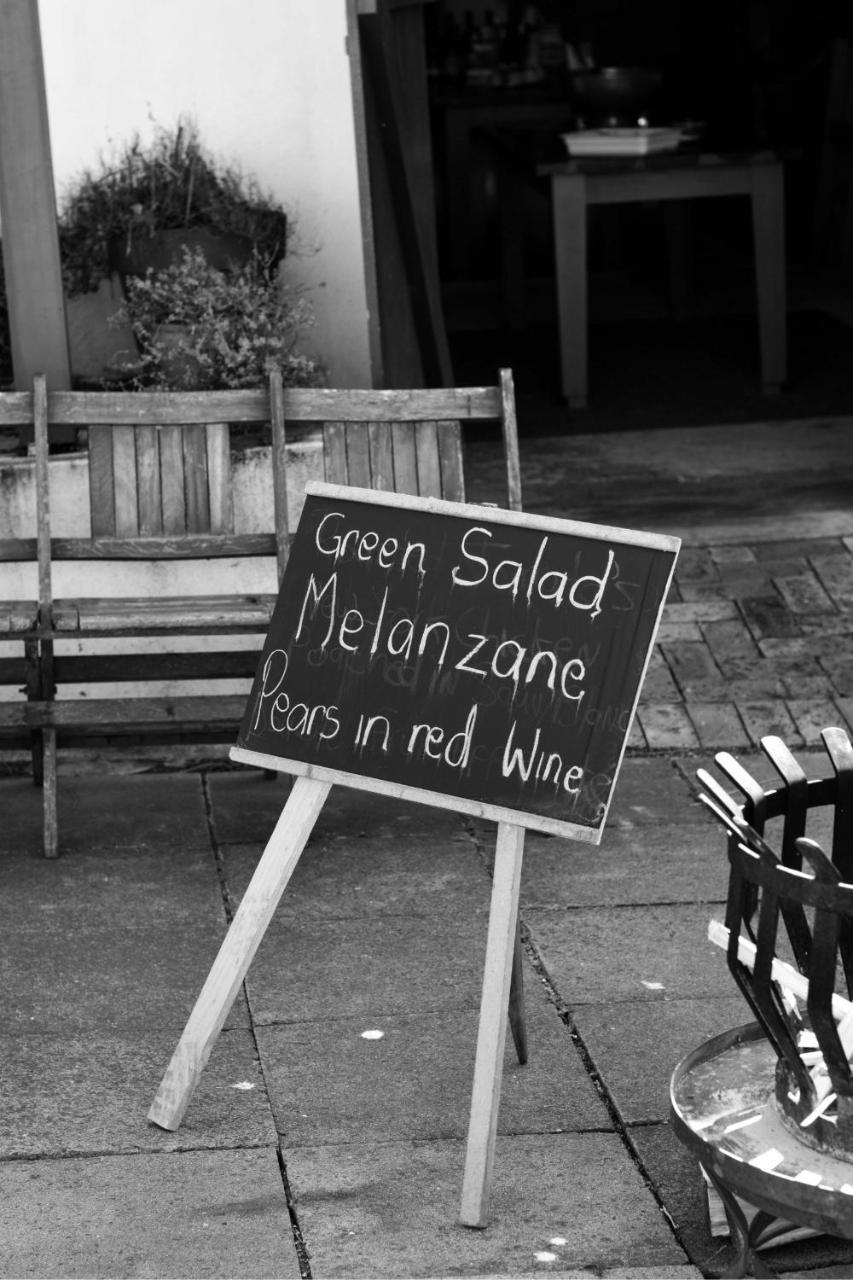 Green Salad
Melanzane
Pears in red Wine